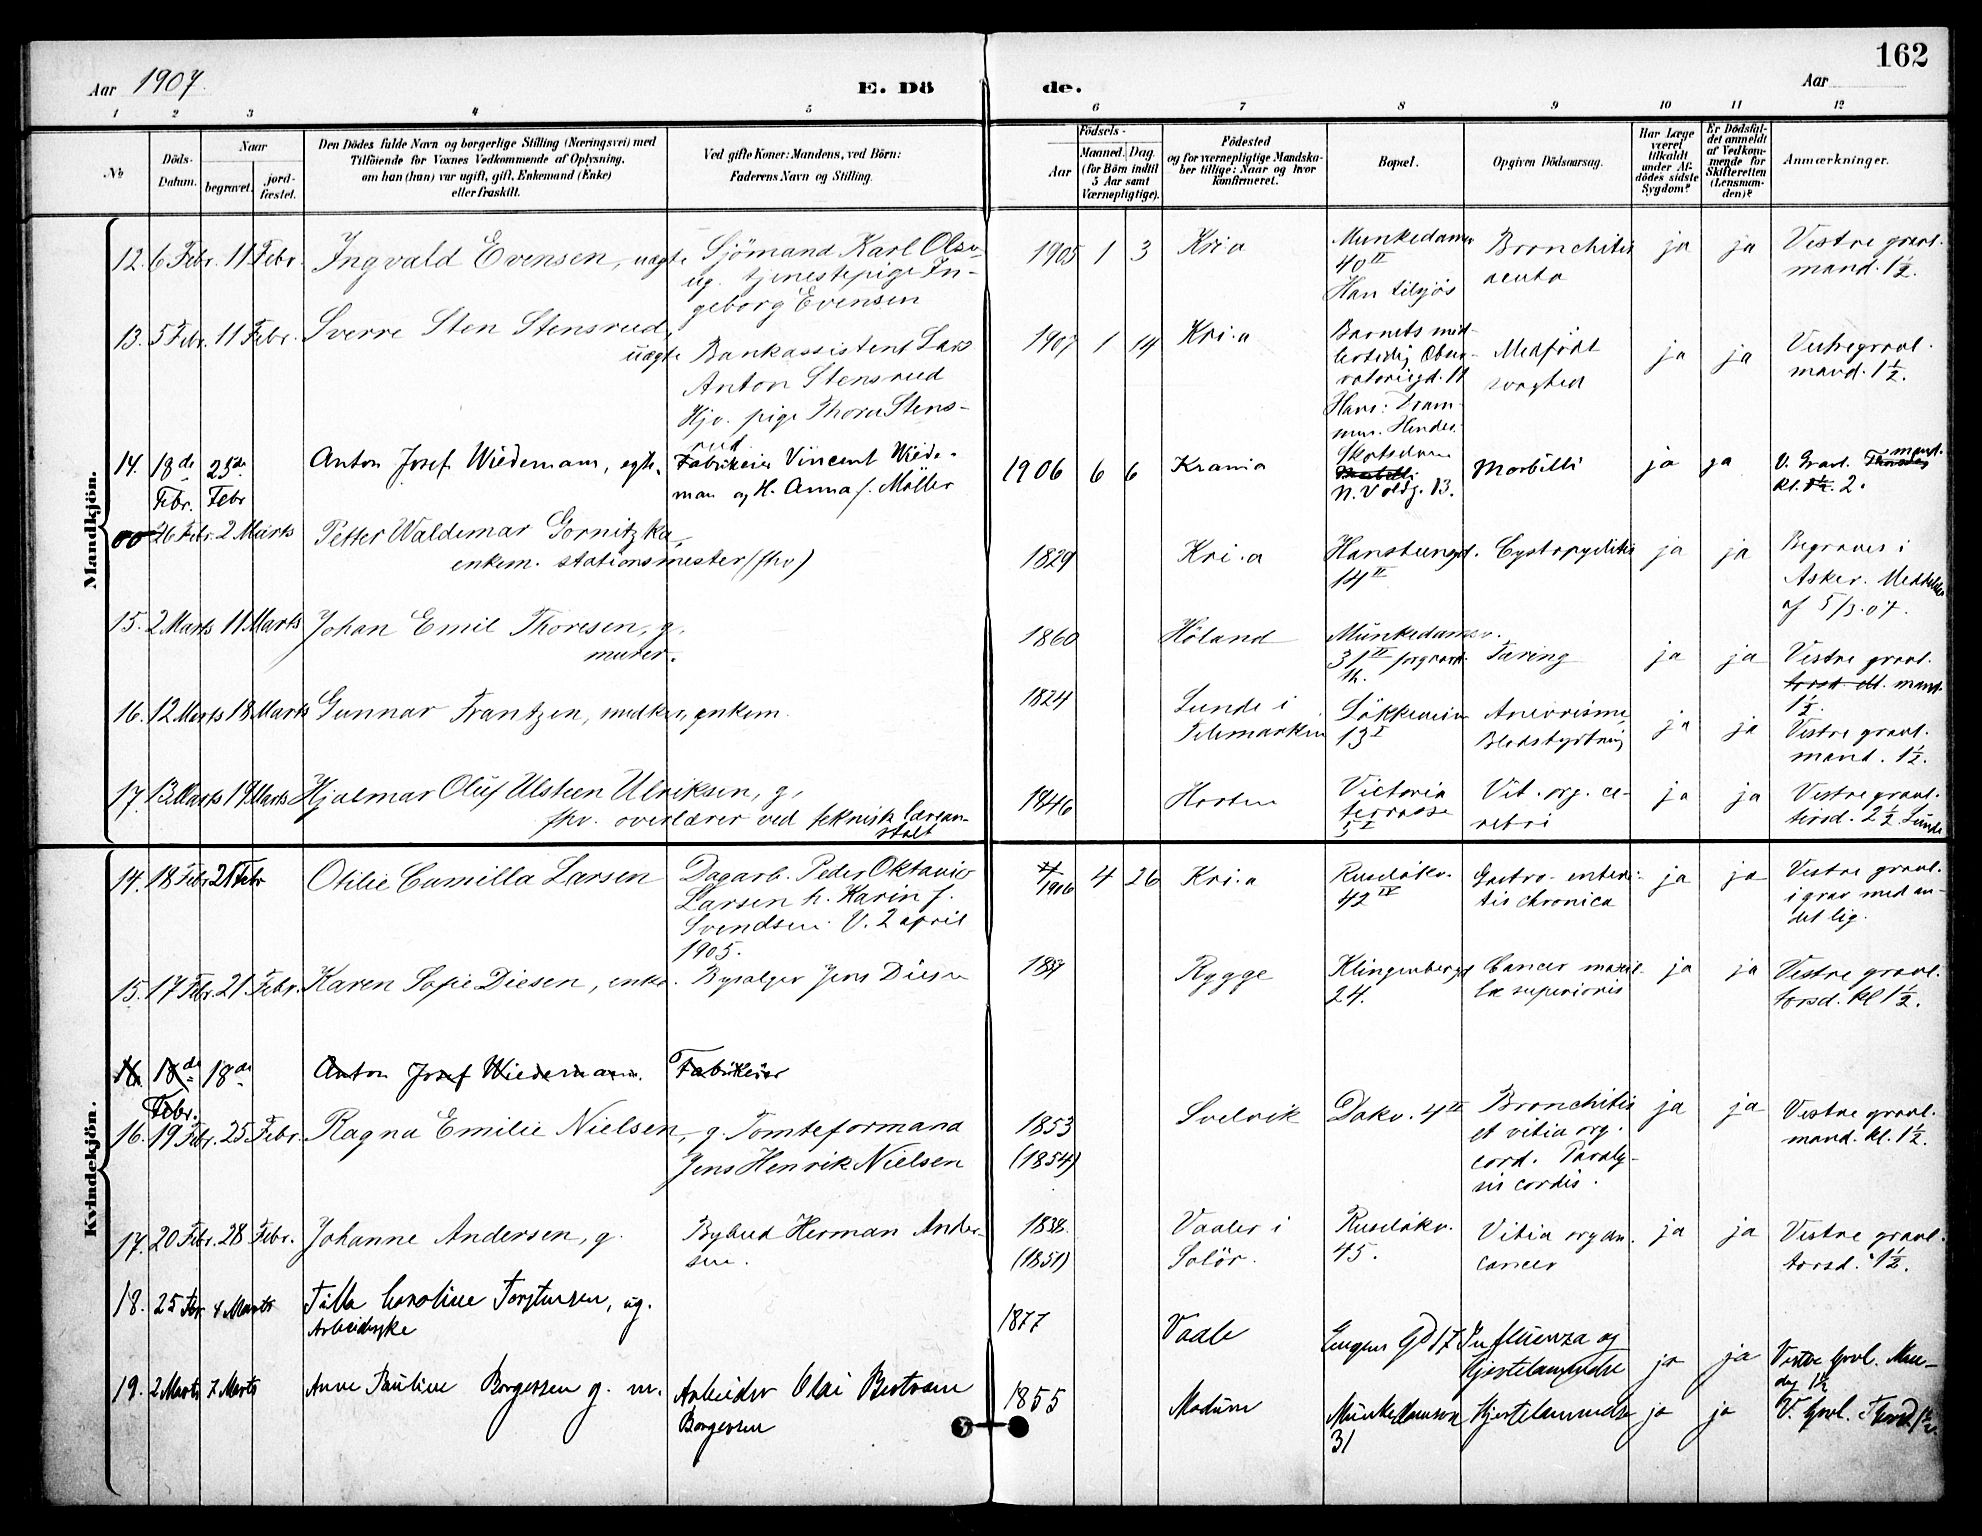 162
Aar 1907. E. Dö de. Aar
1 2 3 4 5 6 7 8 9 10 11 12
No
Döds-Datum.
Naar
begravet.
jord-fæstet.
Den Dödes fulde Navn og borgerlige Stilling (Næringsvei) med
Tilföiende for Voxnes Vedkommende af Oplysning,
om han (hun) var ugift, gift, Enkemand (Enke)
eller fraskilt.
Ved gifte Koner: Mandens, ved Börn:
Faderens Navn og Stilling.
Födsels-
Aar
Maaned. Dag.
(for Börn indtil
5 Aar samt
Værnepligtige).
Födested
og for værnepligtige Mandska-
ber tillige: Naar og hvor
konfirmeret.
Bopæl.
Opgiven Dödsaarsag.
Har Læge
været
tilkaldt
under Af-
dödes sidste
Sygdom?
Er Dödsfal-
det anmeldt
af Vedkom-
mende for
Skifteretten
(Lensman-
den)?
Anmærkninger.
Mandkjön.
12. 6 Febr. 11 Febr. Ingvald Evensen, uægte Sjömand Karl Olsen
ug. tjenestepige In-
geborg Evensen
1905 1 3 Kria
Munkedamsv
40 II
Han tilsjös
Bronchitis
acuta
ja ja
Vestre gravl.
mand. 1½.
13. 5 Febr. 11 Febr. Sverre Sten Stensrud,
uægte Bankassistent Lars
Anton Stensrud
Hjv. pige Thora Stens-
rud.
1907 1 14 Kri.a
Barnets mid-
lertidig Obser-
vatoriegd. 11
Hans: Dram-
men. Hendes:
Medfödt
svaghed
ja ja
Vestregravl.
mand. 1½.
14. 18de Febr. 25de Febr Anton Josef Wiedemann, egte. Fabrikeier Vincent Wiede-
man og H. Anna f. Möller
1906 6 6 Krania
N. Voldg. 13.
Morbilli
ja ja
V. Gravl. mand.
kl. 2.
26 Febr. 2 Marts Petter Waldemar Gornitzka,
enkem. stationsmester (fhv)
1829 Kri.a
14 II
Cystopyelitis
ja ja
Begraves i
Asker. Meddelelse
af 5/3.07.
15. 2 Marts 11 Marts Johan Emil Thoresen, g.
murer.
1860 Höland
Munkedamsv.
31 IV
Tæring
ja ja
Vestre gravl.
mand.
1½.
16. 12 Marts 18 Marts Gunnar Frantzen, enkem.
1824
Lunde i
Telemarken
Lökkeveien
13 I
Aneurisme,
Blodstyrtning
ja ja
Vestre gravl.
mand. 1½.
17. 13 Marts 19 Marts Hjalmar Oluf Ulsteen Ulriksen, g.
fhv. overlærer ved teknisk læreanstalt
1846 Horten
Victoria
terrasse
5 I
Vit. org. ce-
rebri
ja ja
Vestre gravl.
torsd. 2½ Lunde
Kvindekjön.
14. 18 Febr 21 Febr Otilie Camilla Larsen Dagarb. Peder Oktavio
Larsen h. Karin f.
Svendsen. V. 2 april
1905.
1906 4 26 Kri.a
Ruselökv.
42 IV
Gastro-enteri-
tis chronica
ja ja
Vestre gravl.
i grav med an-
det lig.
15. 17 Febr. 21 Febr. Karen Sofie Diesen, enke. Bysælger Jens Diesen
Rygge
Klingenbergg
24.
Cancer maxil-
læ superioris
ja ja
Vestre gravl.
torsd. kl 1½.
16. 18de Febr. 18de Anton Josef Wiedemann. Fabrikeier
16. 19 Febr. 25 Febr. Ragna Emilie Nielsen, g. Tomteformand
Jens Henrik Nielsen
1853
(1854)
Svelvik Dokv. 4 II
Bronchitis
et vitia org.
cord. Paraly-
sis cordis.
ja ja
Vestre gravl.
mand. kl. 1½.
17. 20 Febr. 28 Febr. Johanne Andersen, g. Bybud Herman Ander-
sen.
(1851)
Vaaler i
Solör.
Ruselökv.
45.
Vitia organ.
cancer
ja ja
Vestre gravl.
torsd. 1½.
18. 25 Febr 4 Marts Tilla Caroline Torstensen, ug.
Arbeiderske
1877 Vaale
Eugens Gd 17
Influenza og
Hjertelammelse
ja ja
Vestre Gravl. Man-
dag 1½
19. 2 Marts 7 Marts Anne Pauline Borgersen g. m. Arbeider Olai Bertram
Borgersen
1855 Modum
Munkedamsv
31
Hjertelammelse
ja ja
V. Gravl. Torsd. 1½.